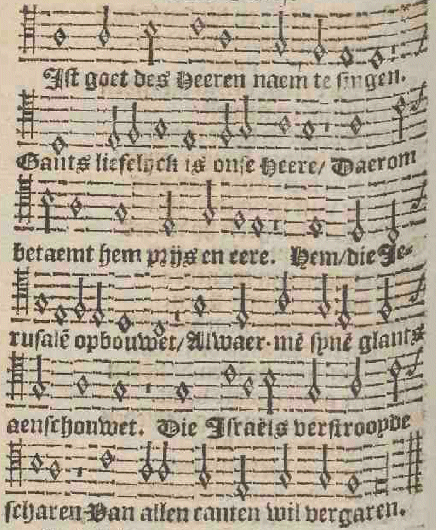 Ist goet des Heeren naem te singen.
Gants lieflyck is onse Heere/ Daerom
betaemt hem prijs en eere. Hem/die Je-
rusalē opbouwet/Alwaer mē synē glants
aenschouwet. Die Israels verstroopde
scharen Van allen canten wil vergaren.